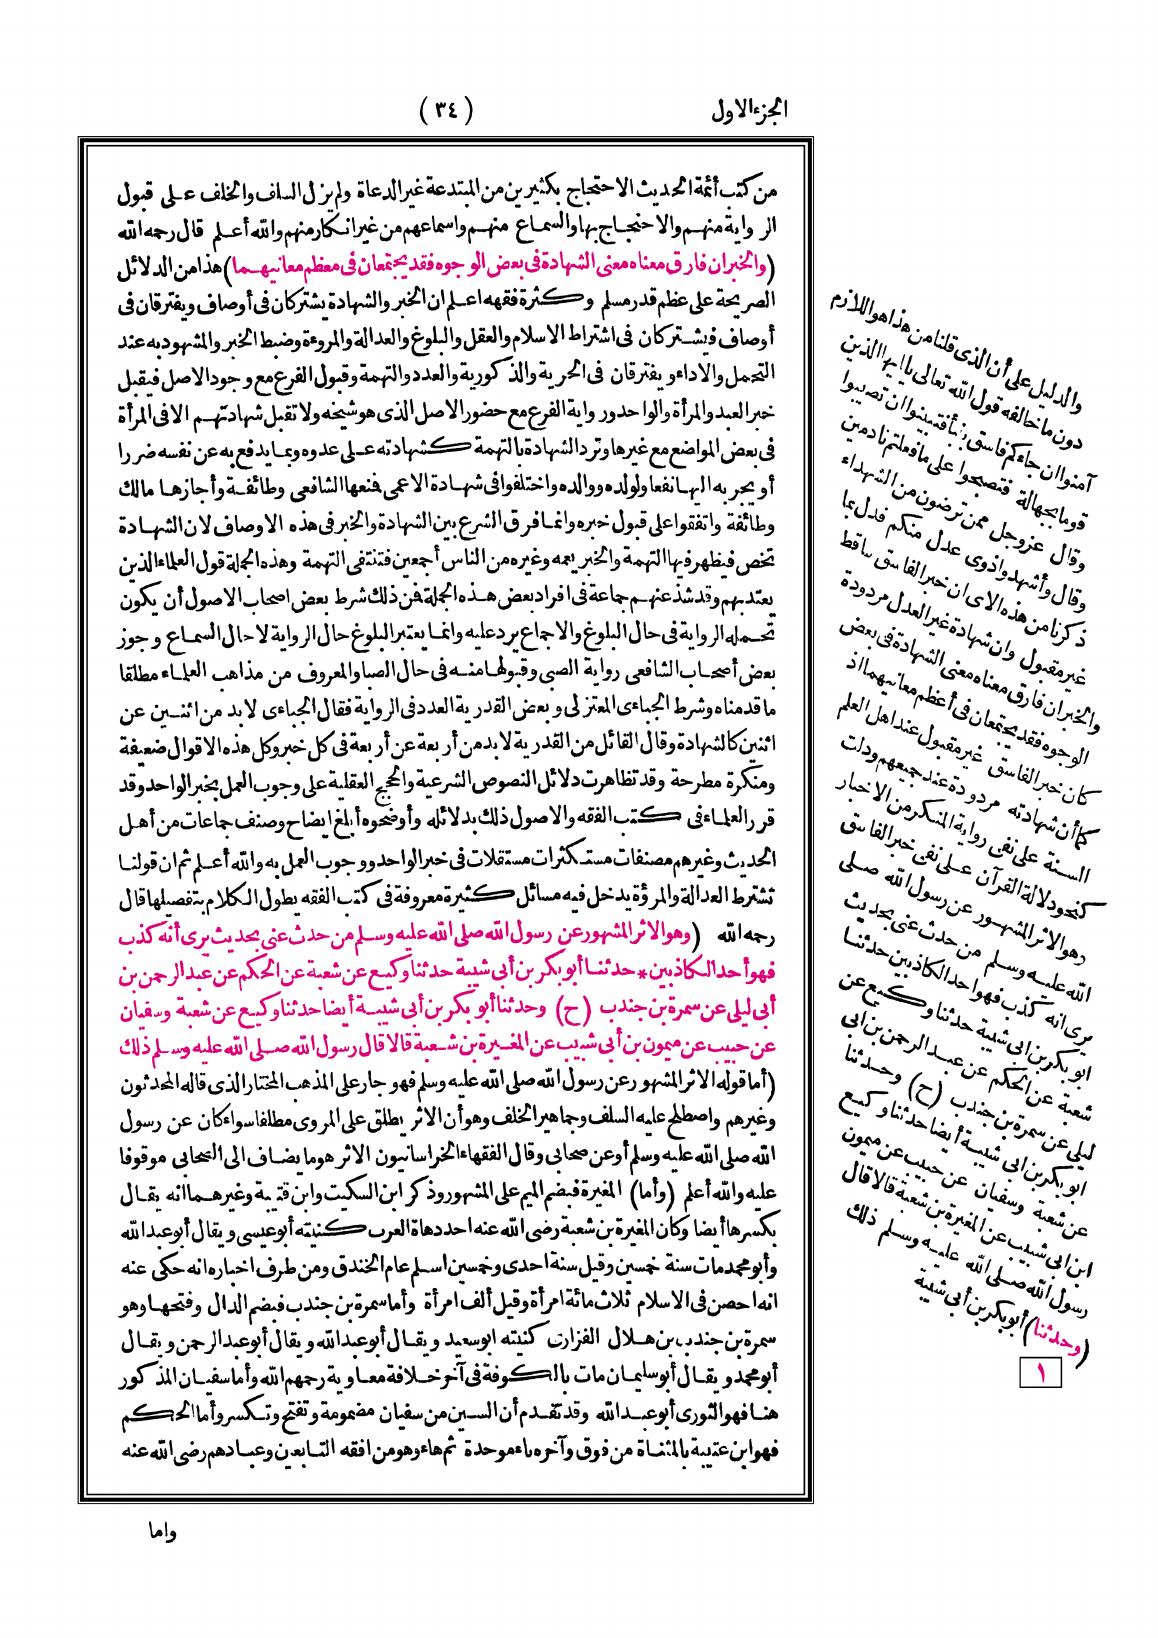 الجزء الاول
( ٣٤ )
من كتب أئمة الحديث الاحتجاج بكثيرين من المبتدعة غير الدعاة ولم يزل السلف والخلف على قبول
الرواية منهم والاحتجاج بها والسماع منهم واسماعهم من غير انكار منهم والله أعلم قال رحمه الله
(والخبران فارق معناه معنى الشهادة فى بعض الوجوه فقد يجتمعان فى معظم معانيهما) هذا من الدلائل
الصريحة على عظم قدر مسلم وكثرة فقهه اعلم ان الخبر والشهادة يشتركان فى أوصاف ويفترقان فى
أوصاف فيشتركان فى اشتراط الاسلام والعقل والبلوغ والعدالة والمروءة وضبط الخبر والمشهود به عند
التحمل والاداء ويفترقان فى الحرية والذكورية والعدد والتهمة وقبول الفرع مع وجود الاصل فيقبل
خبر العبد والمرأة والواحد ورواية الفرع مع حضور الاصل الذى هو شيخه ولا تقبل شهادتهم الا فى المرأة
فى بعض المواضع مع غيرها وترد الشهادة بالتهمة كشهادته على عدوه وبما يدفع به عن نفسه ضررا
أو يجر به اليها نفعا ولولده ووالده واختلفوا فى شهادة الاعمى فمنعها الشافعى وطائفة وأجازها مالك
وطائفة واتفقوا على قبول خبره وانما فرق الشرع بين الشهادة والخبر فى هذه الاوصاف لان الشهادة
تخص فيظهر فيها التهمة والخبر يعمه وغيره من الناس أجمعين فتنتفى التهمة وهذه الجملة قول العلماء الذين
يعتد بهم وقد شذ عنهم جماعة فى افراد بعض هذه الجملة فمن ذلك شرط بعض اصحاب الاصول أن يكون
تحمله الرواية فى حال البلوغ والاجماع يرد عليه وانما يعتبر البلوغ حال الرواية لا حال السماع وجوز
بعض أصحاب الشافعى رواية الصبى وقبولها منه فى حال الصبا والمعروف من مذاهب العلماء مطلقا
ما قدمناه وشرط الجباءى المعتزلى وبعض القدرية العدد فى الرواية فقال الجباءى لا بد من اثنين عن
اثنين كالشهادة وقال القائل من القدرية لا بد من أربعة عن أربعة فى كل خبر وكل هذه الاقوال ضعيفة
ومنكرة مطرحة وقد تظاهرت دلائل النصوص الشرعية والحجج العقلية على وجوب العمل بخبر الواحد وقد
قرر العلماء فى كتب الفقه والاصول ذلك بدلائله وأوضحوه أبلغ ايضاح وصنف جماعات من أهل
الحديث وغيرهم مصنفات مستكثرات مستقلات فى خبر الواحد ووجوب العمل به والله أعلم ثم ان قولنا
تشترط العدالة والمروؤة يدخل فيه مسائل كثيرة معروفة فى كتب الفقه يطول الكلام بتفصيلها قال
رحمه الله (وهو الاثر المشهور عن رسول الله صلى الله عليه وسلم من حدث عنى بحديث يرى أنه كذب
فهو أحد الكاذبين * حدثنا أبو بكر بن أبى شيبة حدثنا وكيع عن شعبة عن الحكم عن عبد الرحمن بن
أبى ليلى عن سمرة بن جندب (ح) وحدثنا أبو بكر بن أبى شيبة أيضا حدثنا وكيع عن شعبة وسفيان
عن حبيب عن ميمون بن أبى شبيب عن المغيرة بن شعبة قالا قال رسول الله صلى الله عليه وسلم ذلك
(أما قوله الاثر المشهور عن رسول الله صلى الله عليه وسلم فهو جار على المذهب المختار الذى قاله المحدثون
وغيرهم واصطلح عليه السلف وجماهير الخلف وهو أن الاثر يطلق على المروى مطلقا سواء كان عن رسول
الله صلى الله عليه وسلم أو عن صحابى وقال الفقهاء الخراسانيون الاثر هو ما يضاف الى الصحابى موقوفا
عليه والله أعلم (وأما) المغيرة فبضم الميم على المشهور وذكر ابن السكيت وابن قتيبة وغيرهما انه يقال
بكسرها أيضا وكان المغيرة بن شعبة رضى الله عنه احد دهاة العرب كنيته أبو عيسى ويقال أبو عبد الله
وأبو محمد مات سنة خمسين وقيل سنة احدى وخمسين اسلم عام الخندق ومن طرف اخباره انه حكى عنه
انه احصن فى الاسلام ثلاث مائة امرأة وقيل ألف امرأة وأما سمرة بن جندب فبضم الدال وفتحها وهو
سمرة بن جندب بن هلال الفزارى كنيته ابو سعيد ويقال أبو عبد الله ويقال أبو عبد الرحمن ويقال
أبو محمد ويقال أبو سليمان مات بالكوفة فى آخر خلافة معاوية رحمهم الله وأما سفيان المذكور
هنا فهو الثورى أبو عبد الله وقد تقدم أن السين من سفيان مضمومة وتفتح وتكسر وأما الحكم
فهو ابن عتيبة بالمثناة من فوق وآخره باء موحدة ثم هاء وهو من افقه التابعين وعبادهم رضى الله عنه
واما
والدليل على أن الذى قلنا من هذا هو اللازم
دون ما خالفه قول الله تعالى يا ايها الذين
آمنوا ان جاءكم فاسق بنبأ فتبينوا ان تصيبوا
قوما بجهالة فتصبحوا على ما فعلتم نادمين
وقال عز وجل ممن ترضون من الشهداء
وقال وأشهدوا ذوى عدل منكم فدل بما
ذكرنا من هذه الاى ان خبر الفاسق ساقط
غير مقبول وان شهادة غير العدل مردودة
والخبران فارق معناه معنى الشهادة فى بعض
الوجوه فقد يجتمعان فى أعظم معانيهما اذ
كان خبر الفاسق غير مقبول عند اهل العلم
كما أن شهادته مردودة عند جميعهم ودلت
السنة على نفى رواية المنكر من الاخبار
كنحو دلالة القرآن على نفى خبر الفاسق
وهو الاثر المشهور عن رسول الله صلى
الله عليه وسلم من حدث عنى بحديث
يرى انه كذب فهو احد الكاذبين حدثنا
ابو بكر بن ابى شيبة حدثنا وكيع عن
شعبة عن الحكم عن عبد الرحمن بن ابى
ليلى عن سمرة بن جندب (ح) وحدثنا
ابو بكر بن ابى شيبة أيضا حدثنا وكيع
عن شعبة وسفيان عن حبيب عن ميمون
ابن ابى شبيب عن المغيرة بن شعبة قالا قال
رسول الله صلى الله عليه وسلم ذلك
(وحدثنا) أبو بكر بن أبى شيبة
١